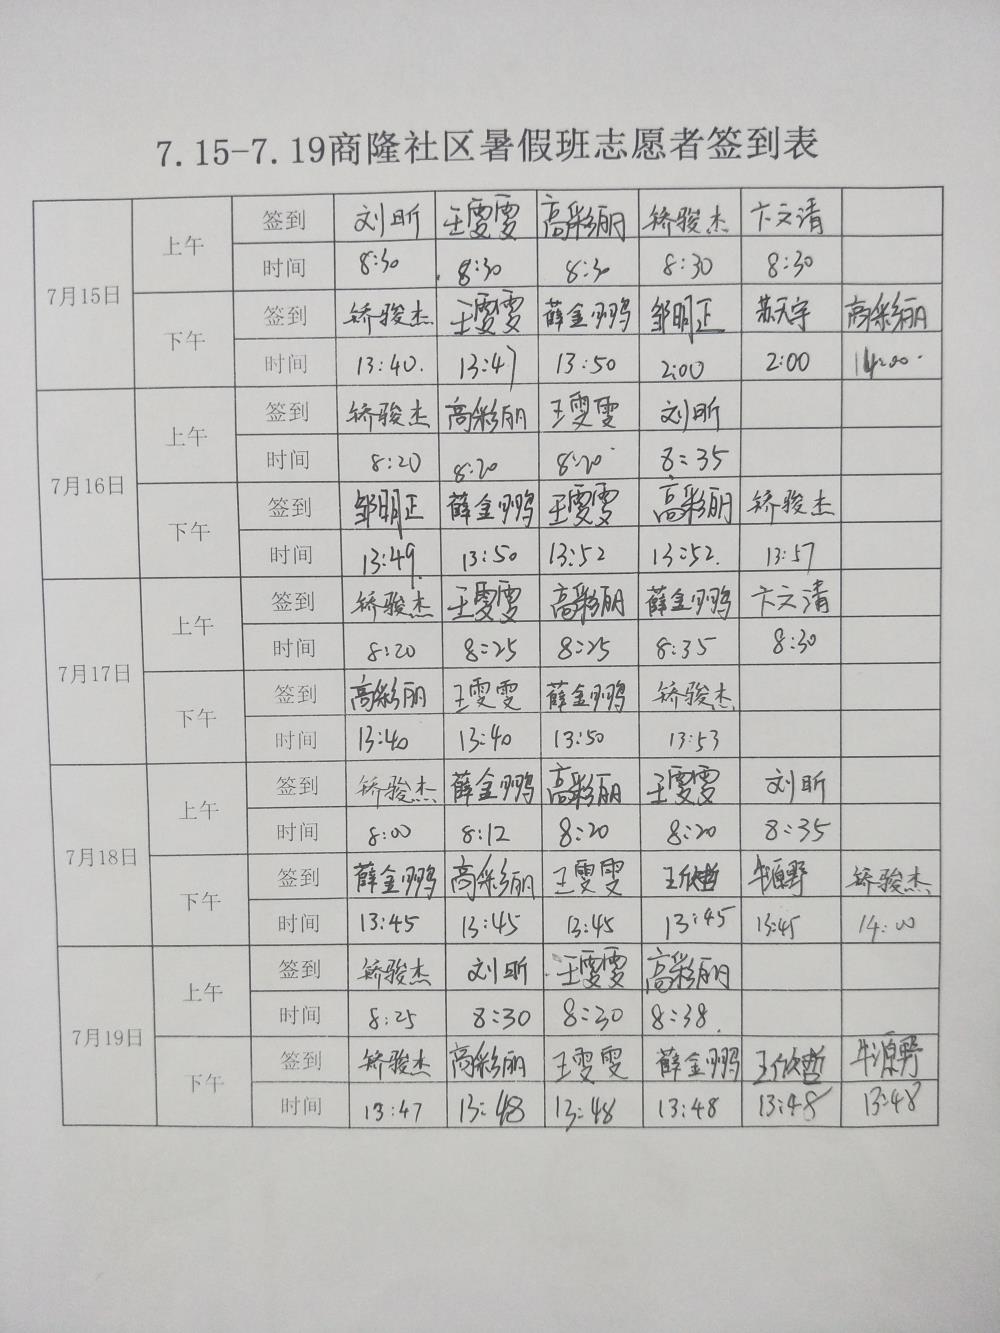 7.15-7.19商隆社区暑假班志愿者签到表
7月15日 上午 签到 刘昕 王雯雯 高彩丽 矫骏杰 卞文清
时间 8:30 8:30 8:30 8:30 8:30
下午 签到 矫骏杰 王雯雯 薛金鹏 邹明正 苏天宇 高彩丽
时间 13:40. 13:47 13:50 2:00 2:00 14:00.
7月16日 上午 签到 矫骏杰 高彩丽 王雯雯 刘昕
时间 8:20 8:20 8:20 8:35
下午 签到 邹明正 薛金鹏 王雯雯 高彩丽 矫骏杰
时间 13:49. 13:50 13:52 13:52. 13:57
7月17日 上午 签到 矫骏杰 王雯雯 高彩丽 薛金鹏 卞文清
时间 8:20 8:25 8:25 8:35 8:30
下午 签到 高彩丽 王雯雯 薛金鹏 矫骏杰
时间 13:40 13:40 13:50 13:53
7月18日 上午 签到 矫骏杰 薛金鹏 高彩丽 王雯雯 刘昕
时间 8:00 8:12 8:20 8:20 8:35
下午 签到 薛金鹏 高彩丽 王雯雯 王欣哲 牛源野 矫骏杰
时间 13:45 13:45 13:45 13:45 13:45 14:00
7月19日 上午 签到 矫骏杰 刘昕 王雯雯 高彩丽
时间 8:25 8:30 8:30 8:38.
下午 签到 矫骏杰 高彩丽 王雯雯 薛金鹏 王欣哲 牛源野
时间 13:47 13:48 13:48 13:48 13:48 13:48